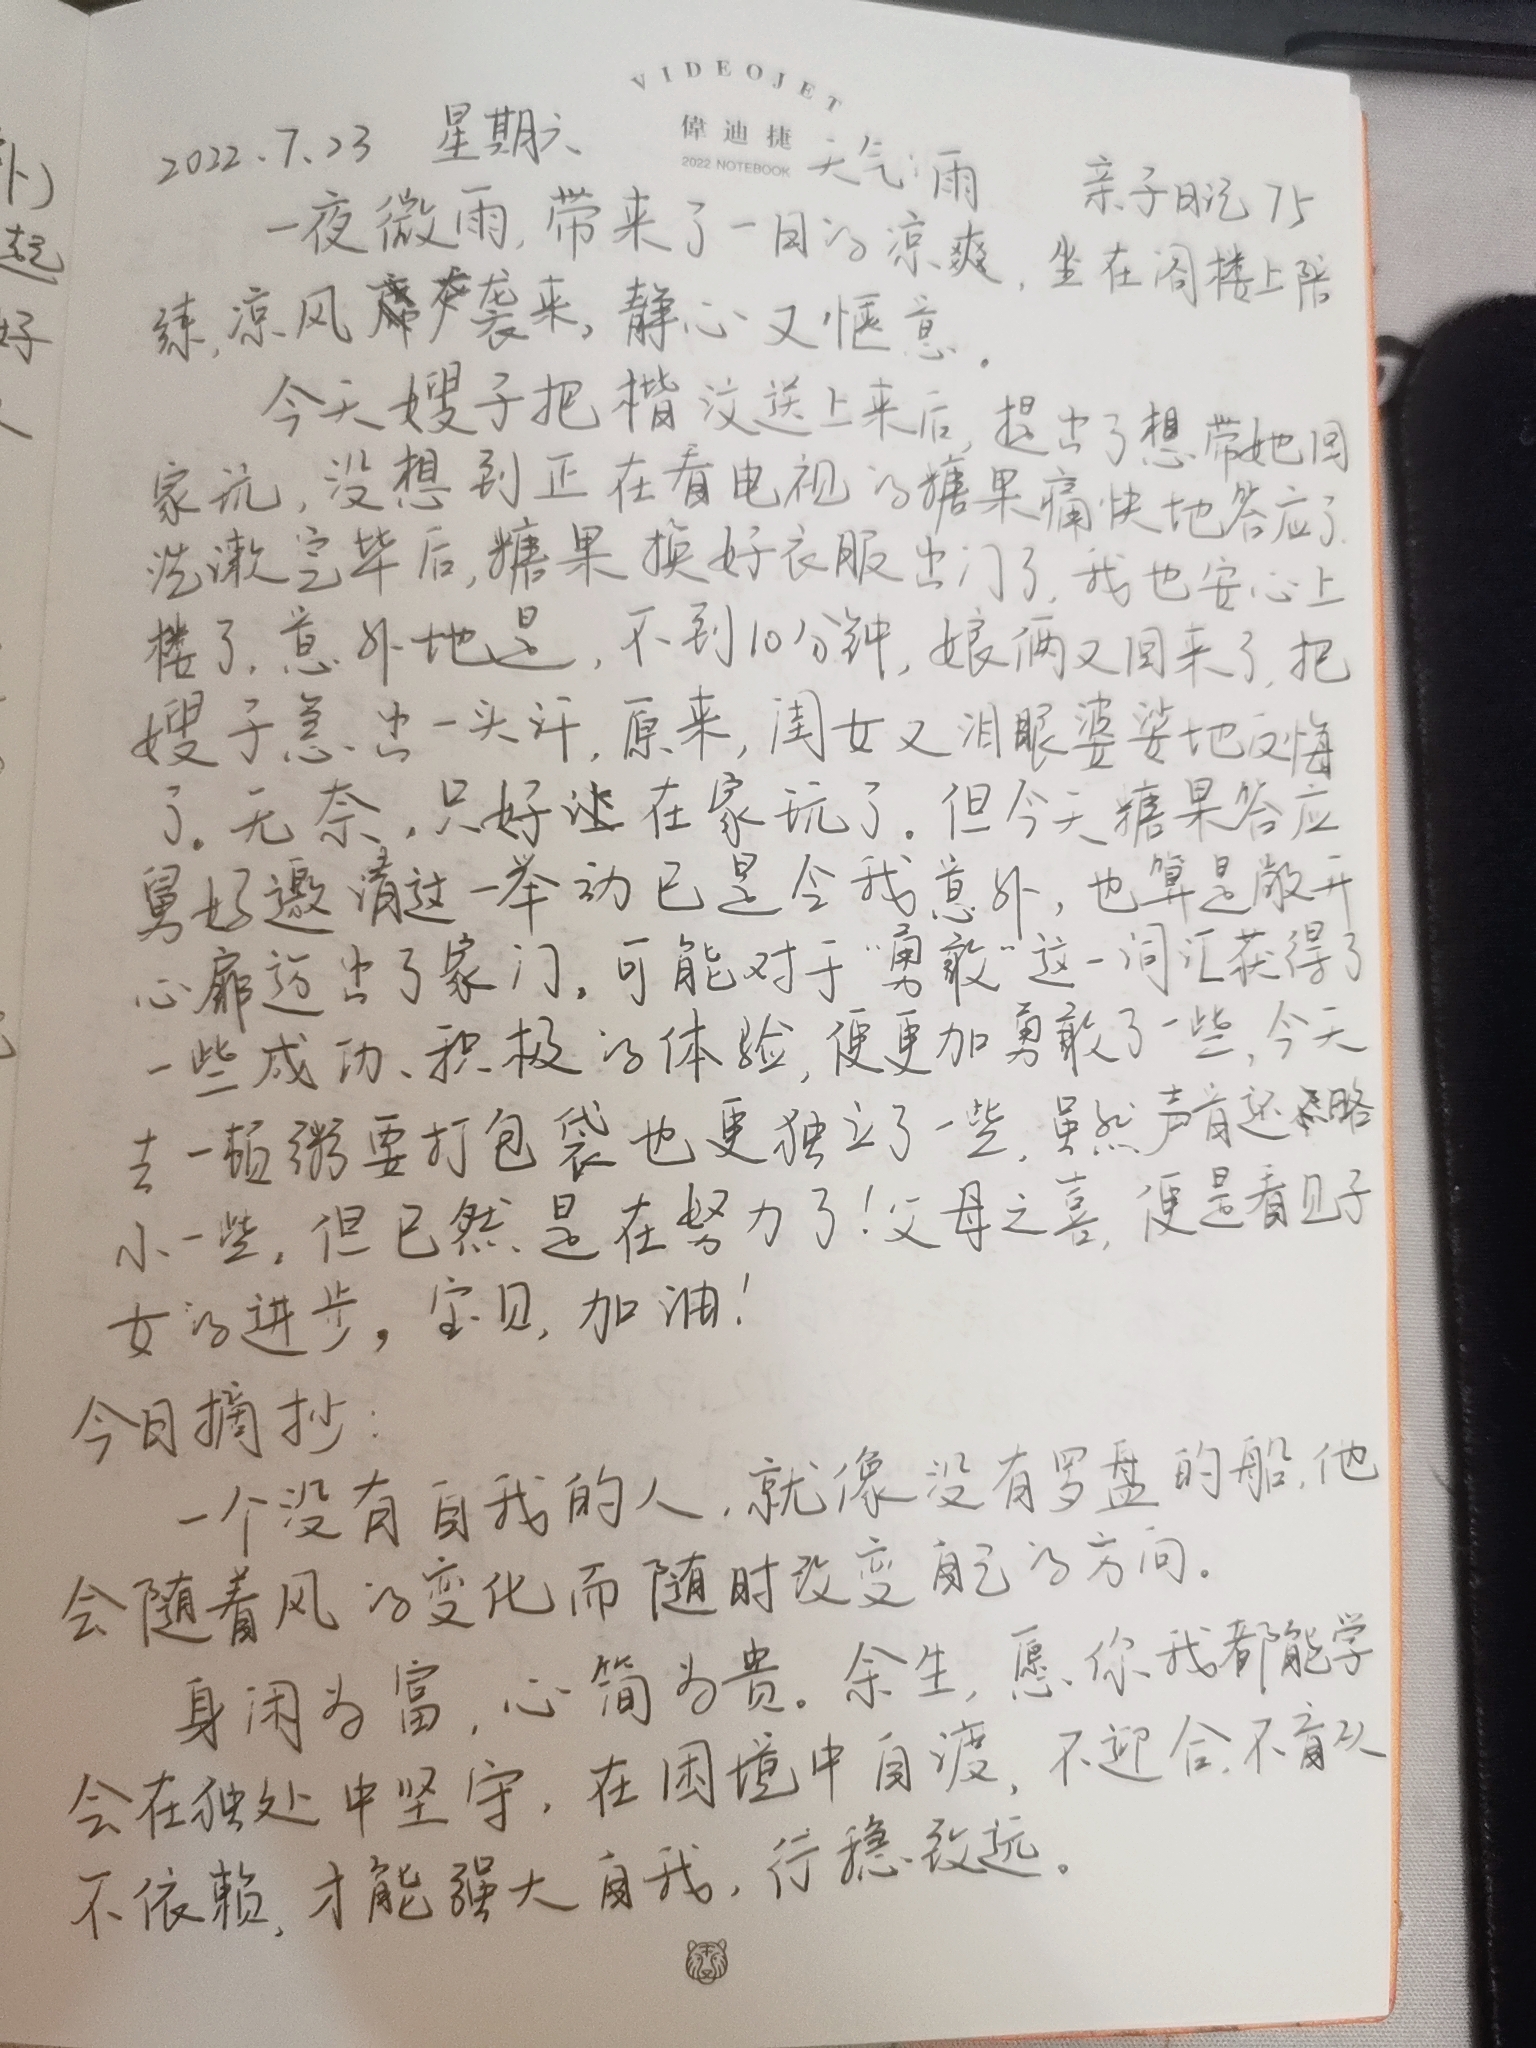 VIDEOJET
偉迪捷
2022 NOTEBOOK
2022.7.23 星期六 天气:雨 亲子日记75
一夜微雨,带来了一日的凉爽,坐在阁楼上陪
练,凉风袭来,静心又惬意。
今天嫂子把楷汶送上来后,提出了想带她回
家玩,没想到正在看电视的糖果痛快地答应了.
洗漱完毕后,糖果换好衣服出门了,我也安心上
楼了,意外地是,不到10分钟,娘俩又回来了,把
嫂子急出一头汗,原来,闺女又泪眼婆娑地反悔
了。无奈,只好让在家玩了。但今天糖果答应
舅妈邀请这一举动已是令我意外,也算是敞开
心扉迈出了家门。可能对于“勇敢”这一词汇获得了
一些成功、积极的体验,便更加勇敢了一些,今天
去一顿粥要打包袋也更独立了一些,虽然声音还略
小一些,但已然是在努力了!父母之喜,便是看见子
女的进步,宝贝,加油!
今日摘抄:
一个没有自我的人,就像没有罗盘的船,他
会随着风的变化而随时改变自己的方向.
身闲为富,心简为贵。余生,愿你我都能学
会在独处中坚守,在困境中自渡,不迎合,不盲从
不依赖,才能强大自我,行稳致远。